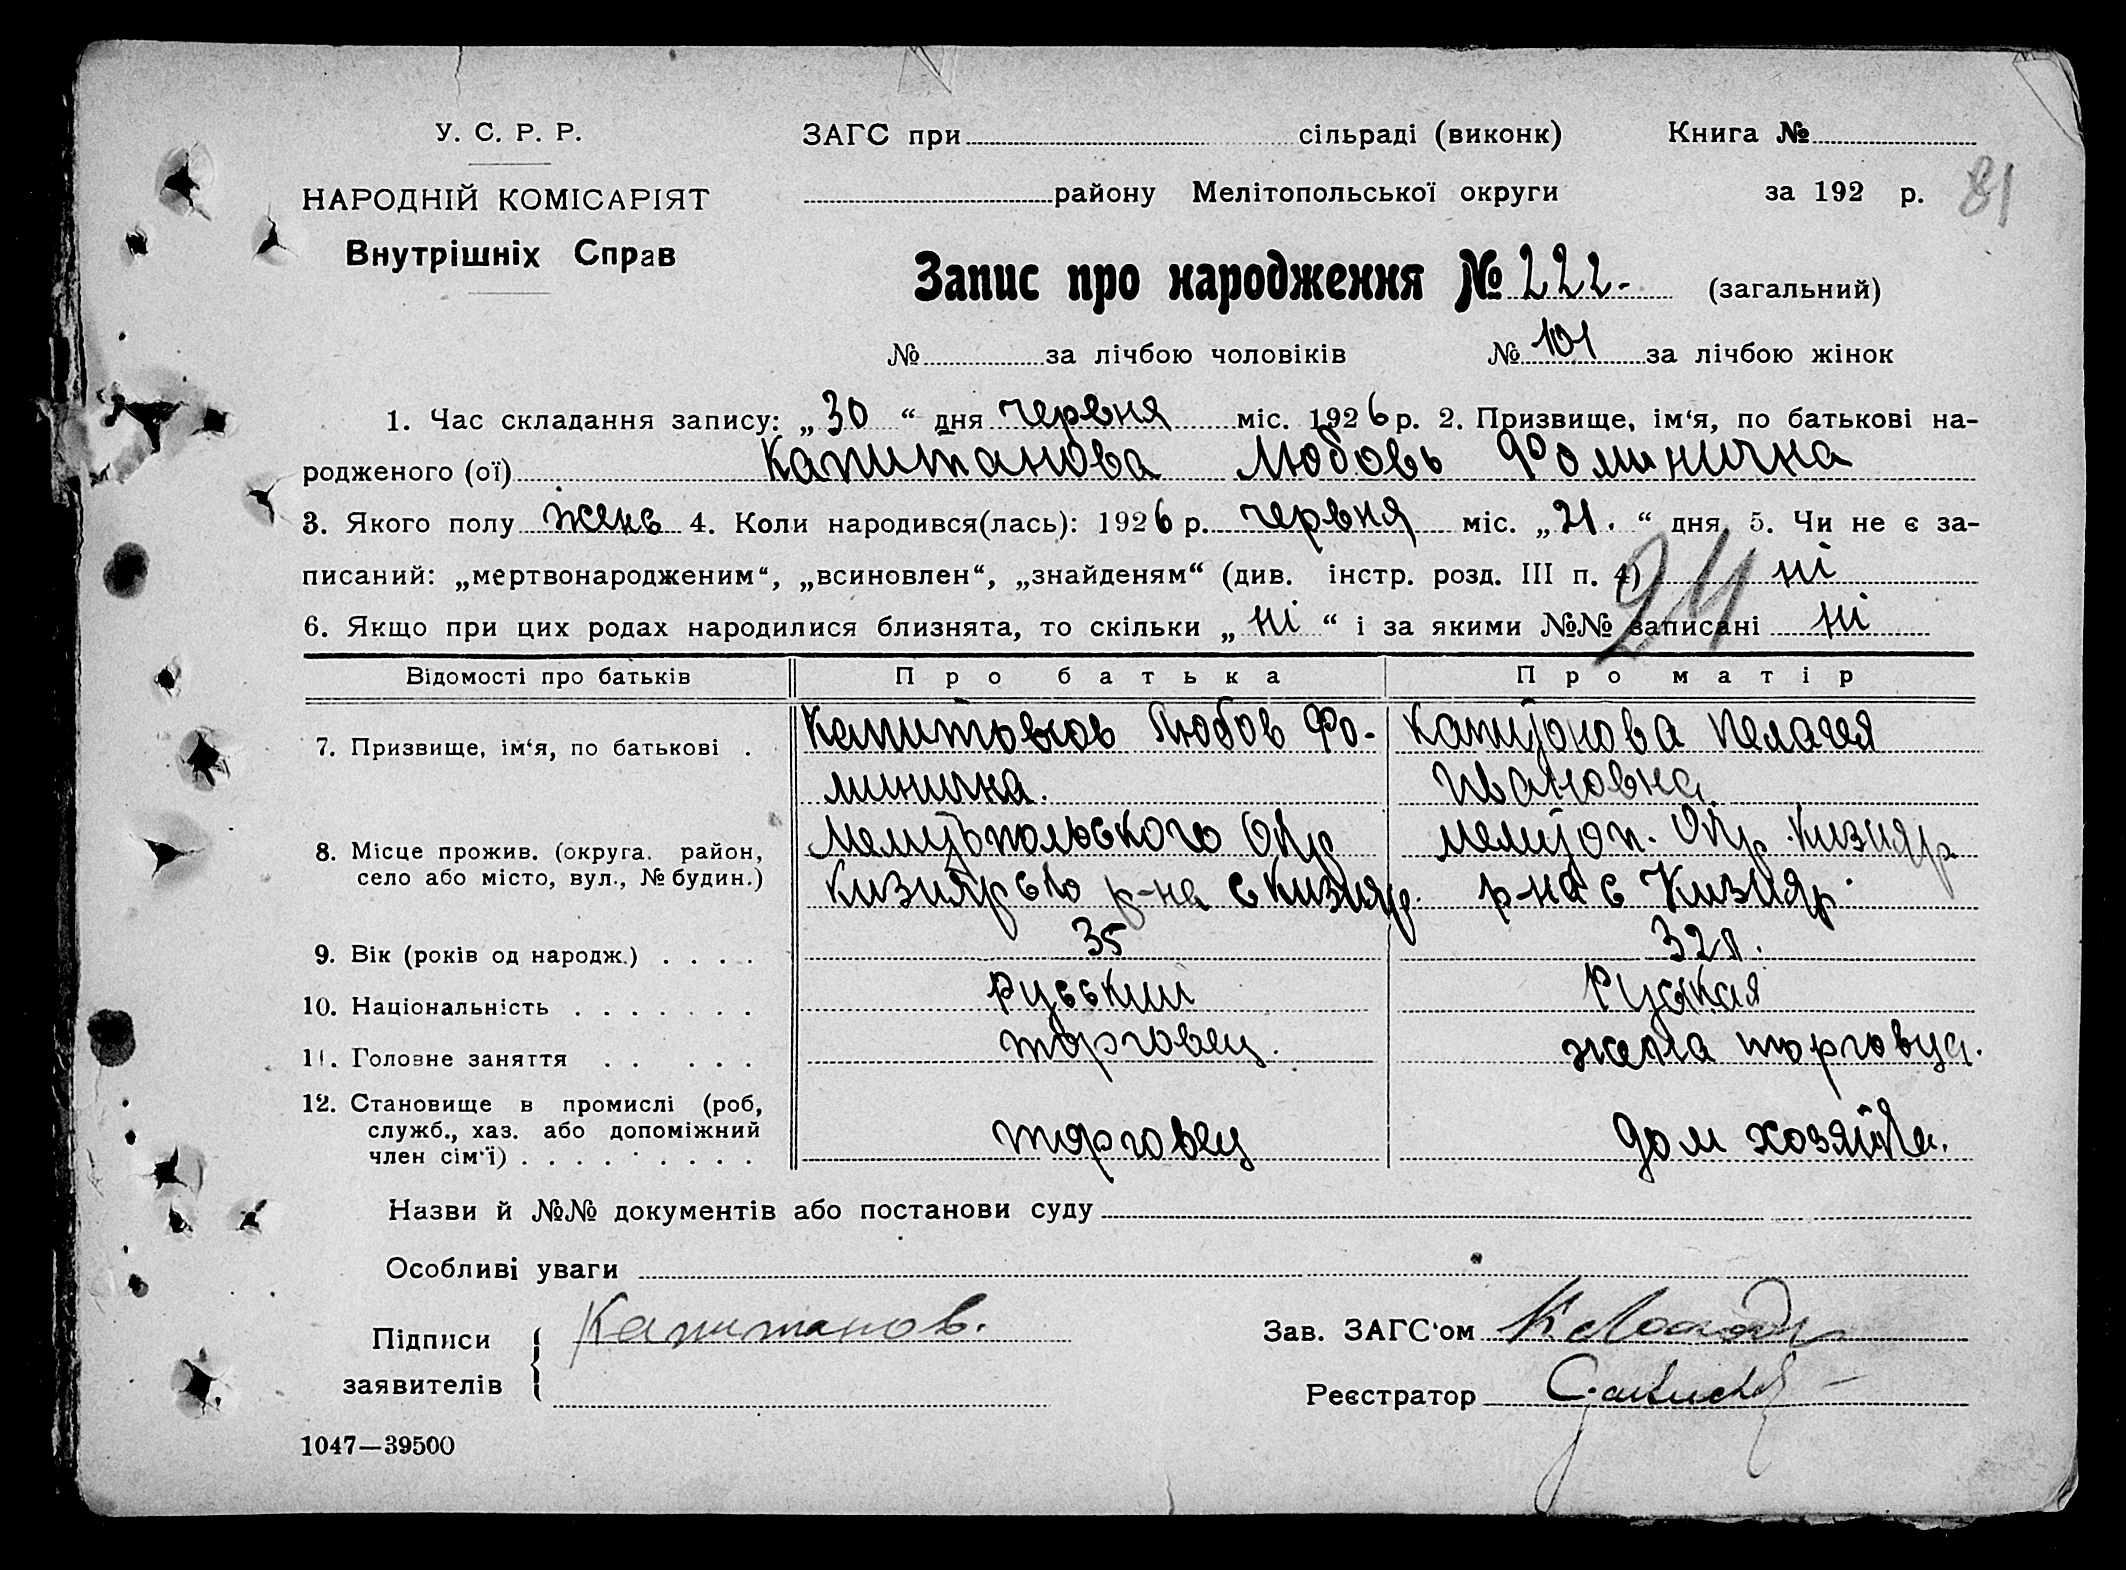 У. С. Р. Р.
ЗАГС при сільраді (виконк) Книга №
НАРОДНІЙ КОМІСАРІЯТ
району Мелітопольської округи за 192 р. 81
Внутрішніх Справ
Запис про народження № 222. (загальний)
№ за лічбою чоловіків № 101 за лічбою жінок
1. Час складання запису: „ 30 “ дня червня міс. 1926 р. 2. Призвище, ім‘я, по батькові на-
родженого (ої) Капитанова Любовь Фоминична
3. Якого полу жень 4. Коли народився(лась): 1926 р. червня міс. „ 21. “ дня 5. Чи не є за-
писаний: „мертвонародженим“, „всиновлен“, „знайденям“ (див. інстр. розд. III п. 4) ні
24
6. Якщо при цих родах народилися близнята, то скільки „ ні “ і за якими №№ записані ні
Відомості про батьків Про батька Про матір
7. Призвище, ім‘я, по батькові . Любов Фо- Пелагея
миничка. Ивановна
8. Місце прожив. (округа. район, Мелитопольского Окр Мелитоп. Окр. Кизияр
село або місто, вул., № будин.) Кизиярсько р-на с Кизияр. р-на с Кизияр.
9. Вік (років од народж.) . . . . 35 32 л.
10. Національність . . . . . . . русский Руская
11. Головне заняття . . . . . торговец. жена торговца.
12. Становище в промислі (роб,
служб., хаз. або допоміжний торговец дом хозяйка.
член сім‘ї) . . . . . . . . .
Назви й №№ документів або постанови суду
Особливі уваги
Підписи Капитанов. Зав. ЗАГС‘ом
заявителів Реєстратор
1047—39500